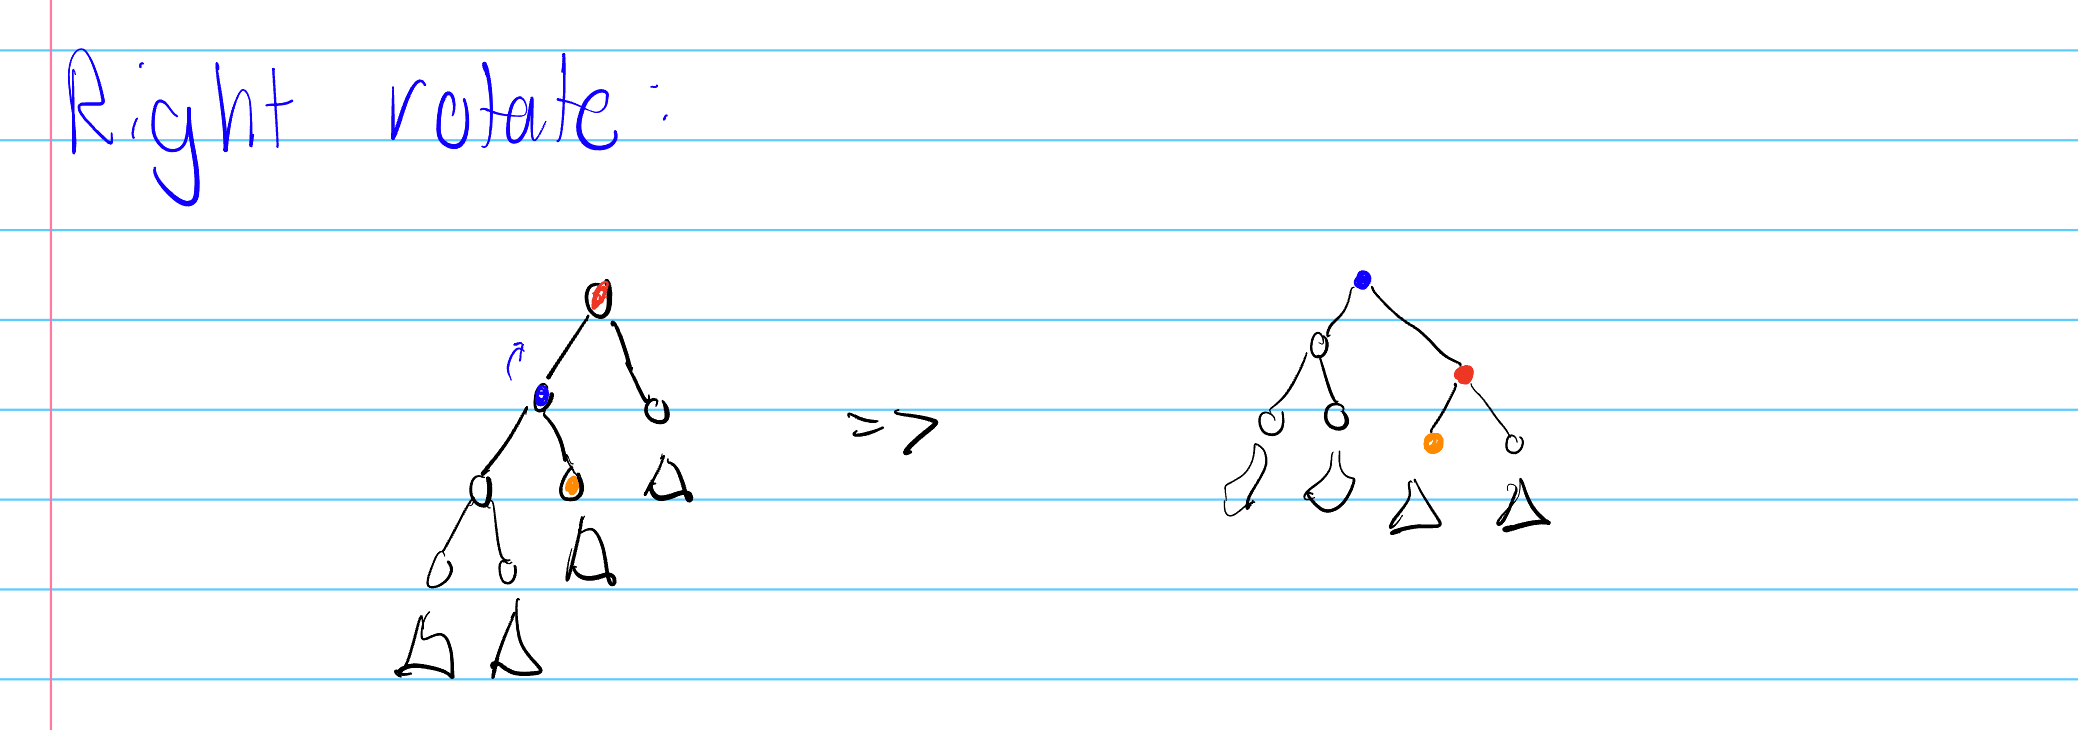 Right rotate:
=>